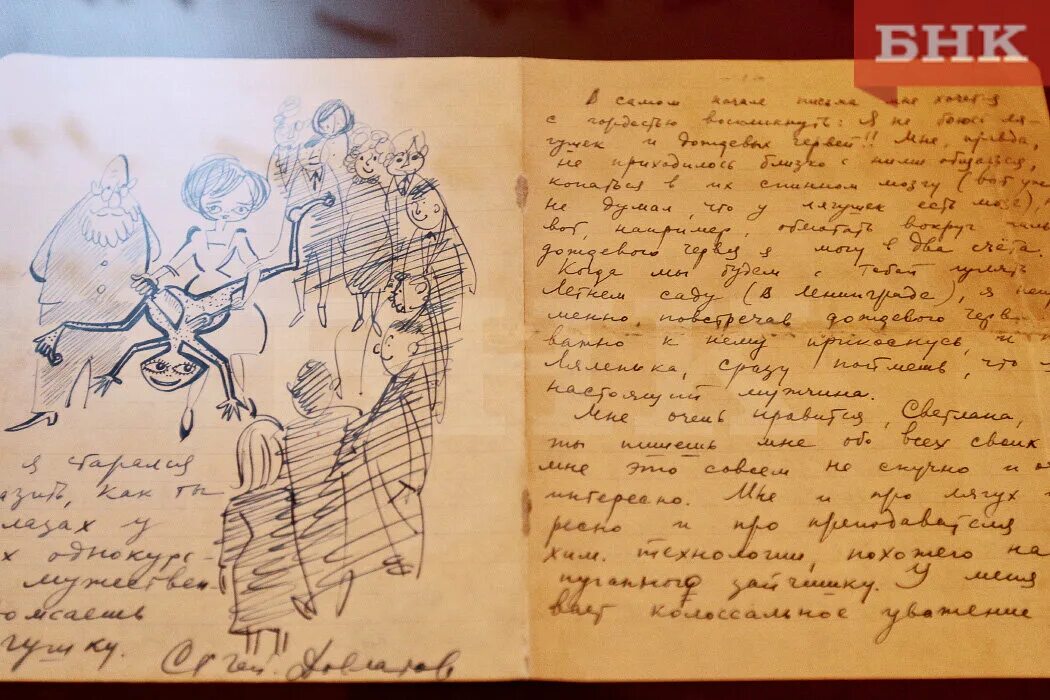 БНК
я старался
азить, как ты
глазах у
х однокурс-
мужествен
ромсаешь
гушку.
Сергей Довлатов
В самом начале письма мне хочется
с гордостью воскликнуть: Я не боюсь ля-
гушек и дождевых червей!! Мне, правда,
не приходилось близко с ними общаться,
копаться в их спинном мозгу (вот уж
не думал, что у лягушек есть мозг),
вот, например, обмотать вокруг паль
дождевого червя я могу в два счёта.
Когда мы будем с тобой гулять
Летнем саду (в Ленинграде), я
менно, повстречав дождевого черв
важно к нему прикоснусь, и
Ляленька, сразу поймешь, что
настоящий мужчина.
Мне очень нравится, Светлана,
ты пишешь мне обо всех своих
мне это совсем не скучно и о
интересно. Мне и про лягух
ресно и про преподавателя
хим. технологии, похожего на
пуганного зайчишку. У меня
вает колоссальное уважение